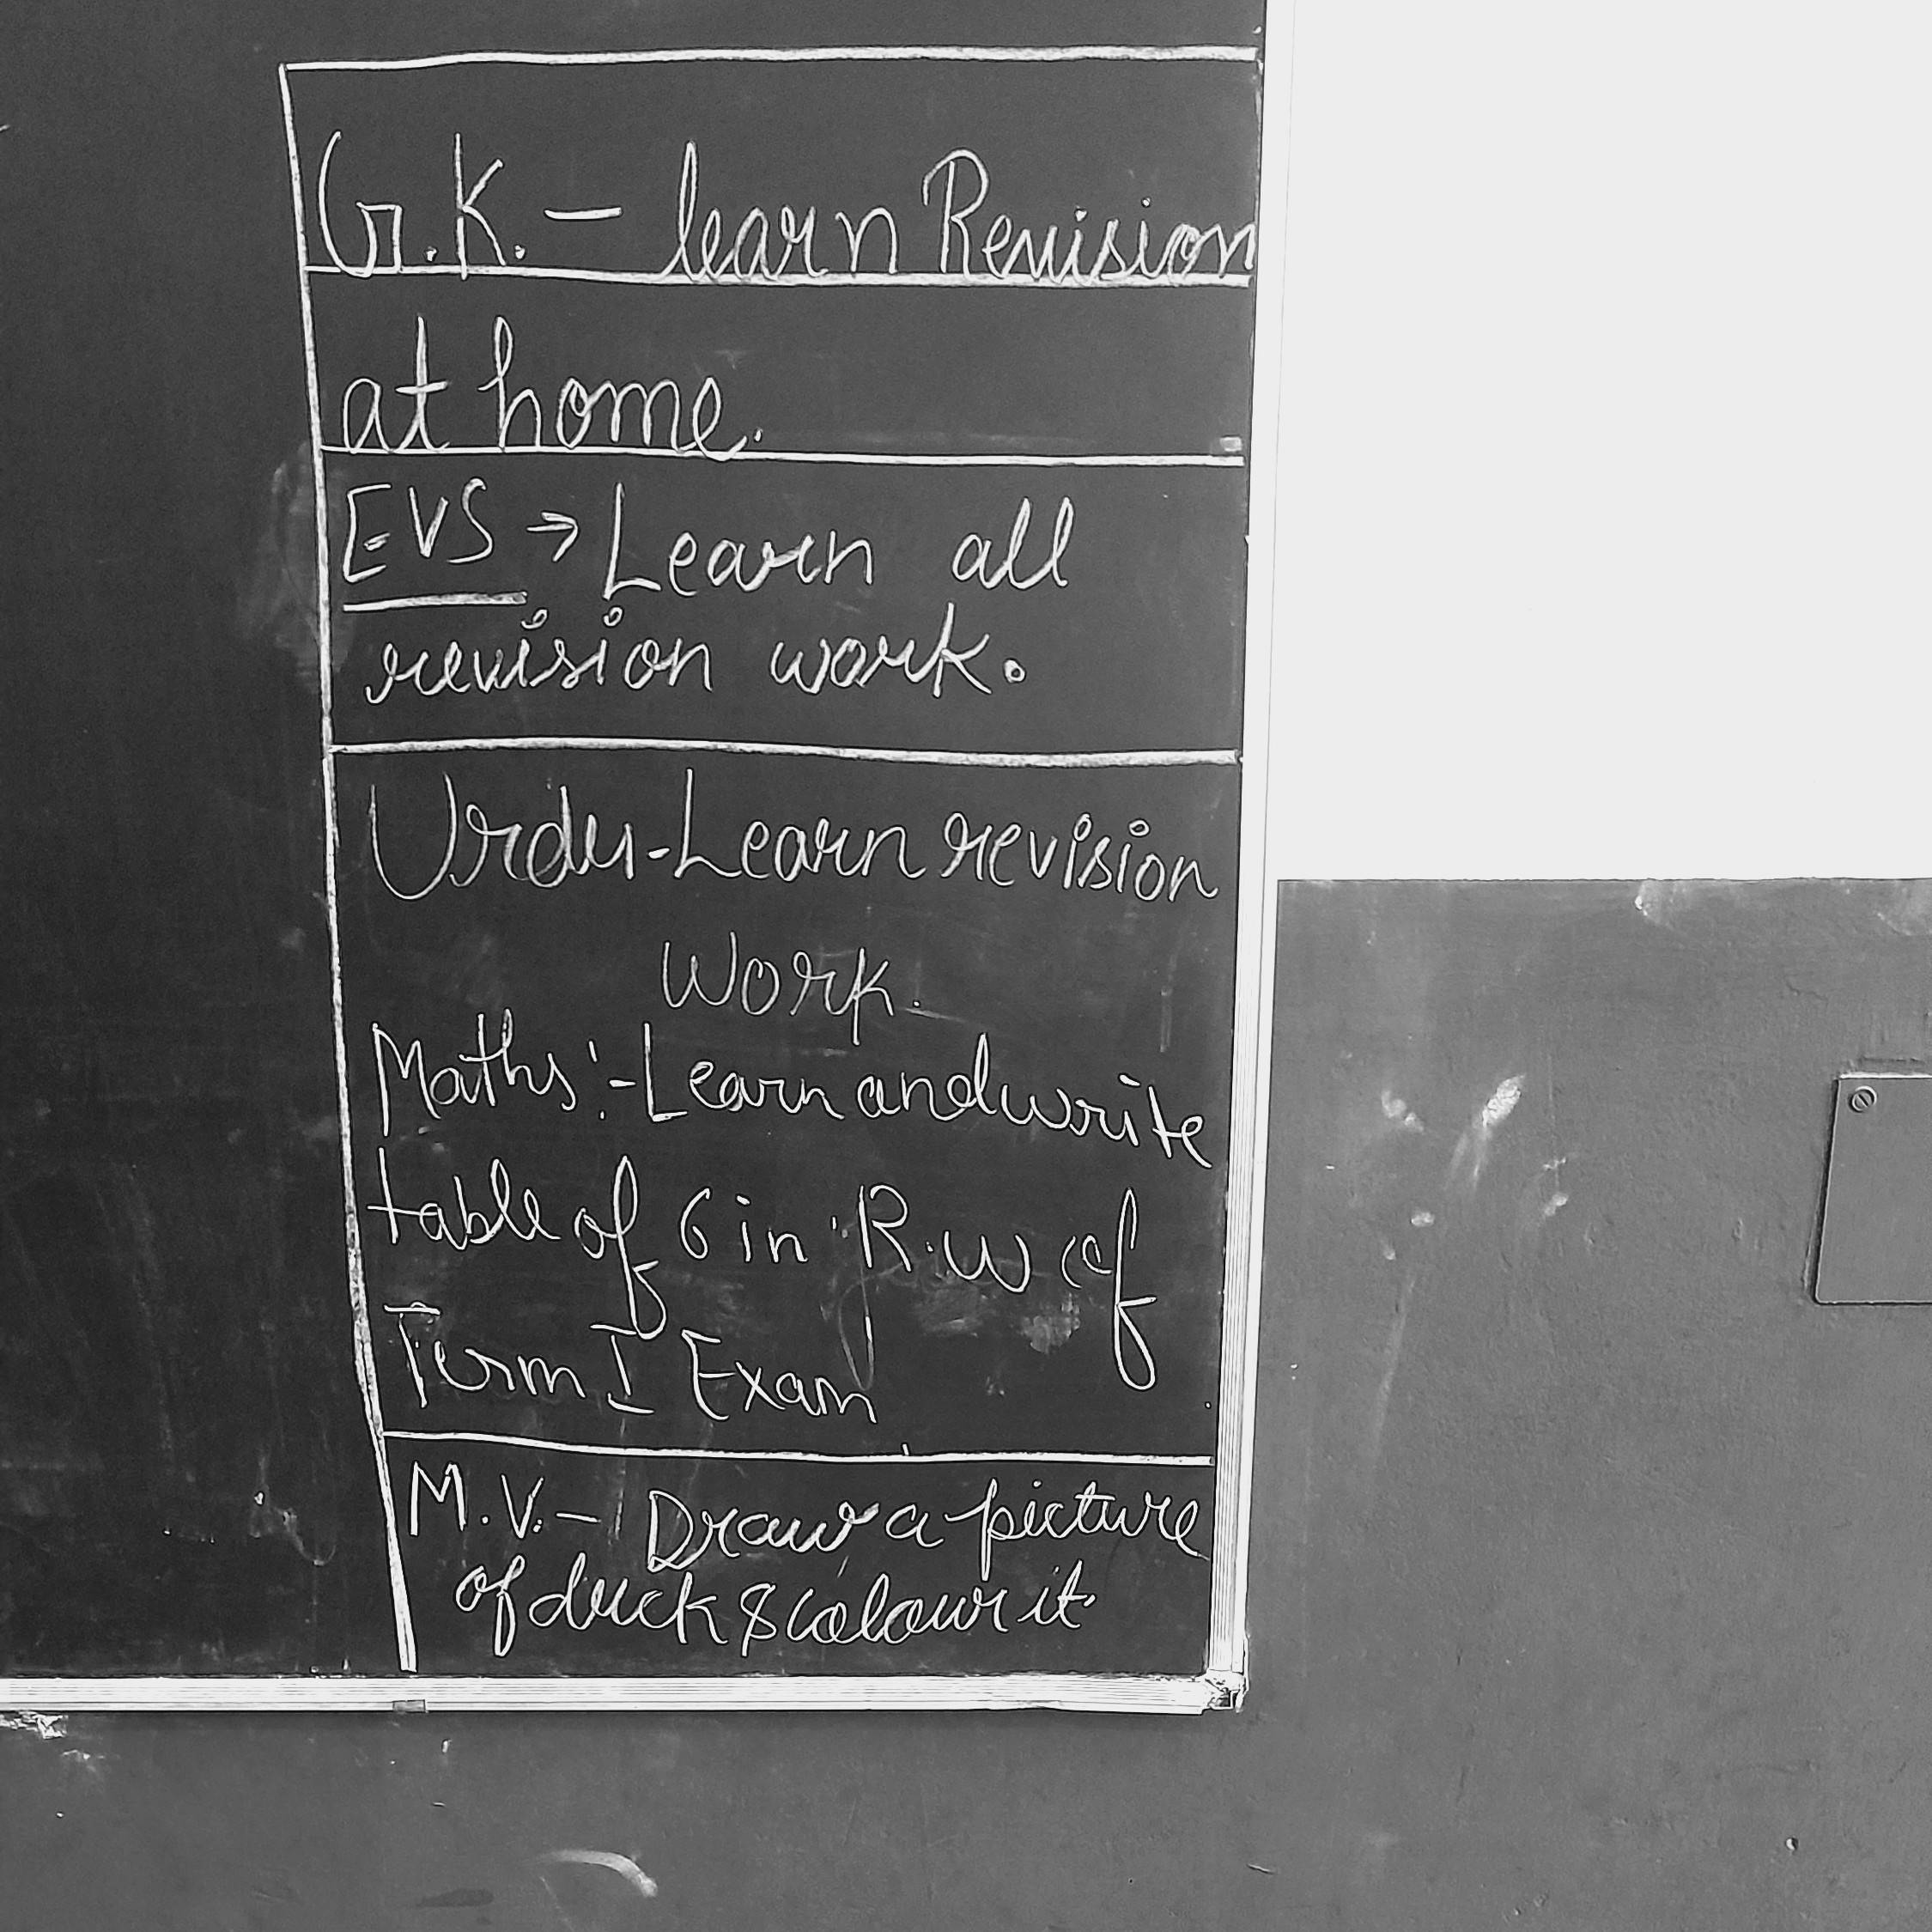 G.K. - learn Revision
at home.
EVS → Learn all
revision work.
Urdu - Learn revision
Work.
Maths :- Learn and write
table of 6 in R.W of
Term I Exam
M.V. - Draw a picture
of duck & colour it.